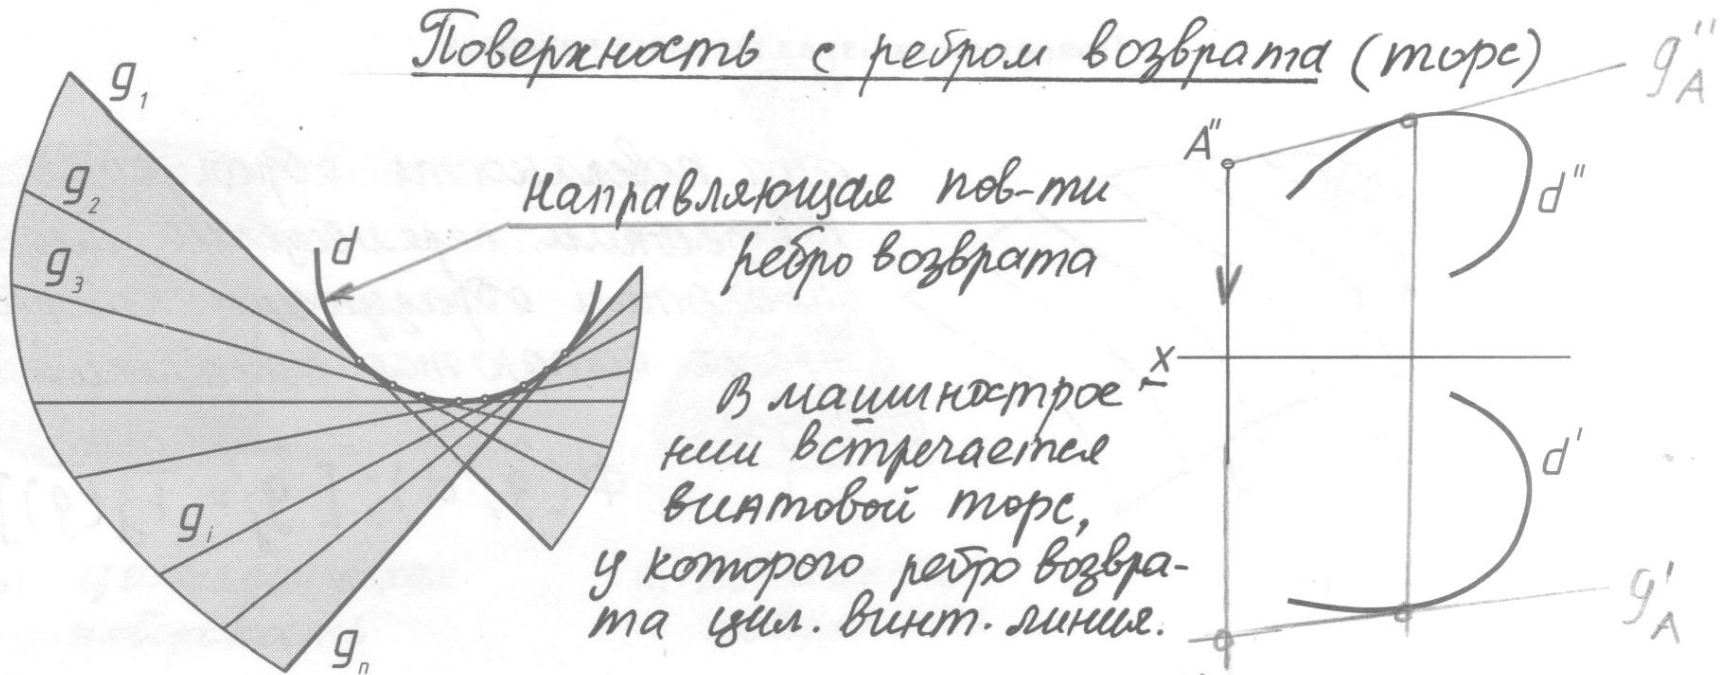 Поверхность с ребром возврата (торс)
g₁
g₂
g₃
gᵢ
gₙ
d
Направляющая пов-ти
ребро возврата
В машинострое-
нии встречается
винтовой торс,
у которого ребро возвра-
та цил. винт. линия.
g''A
A''
d''
x
d'
g'A